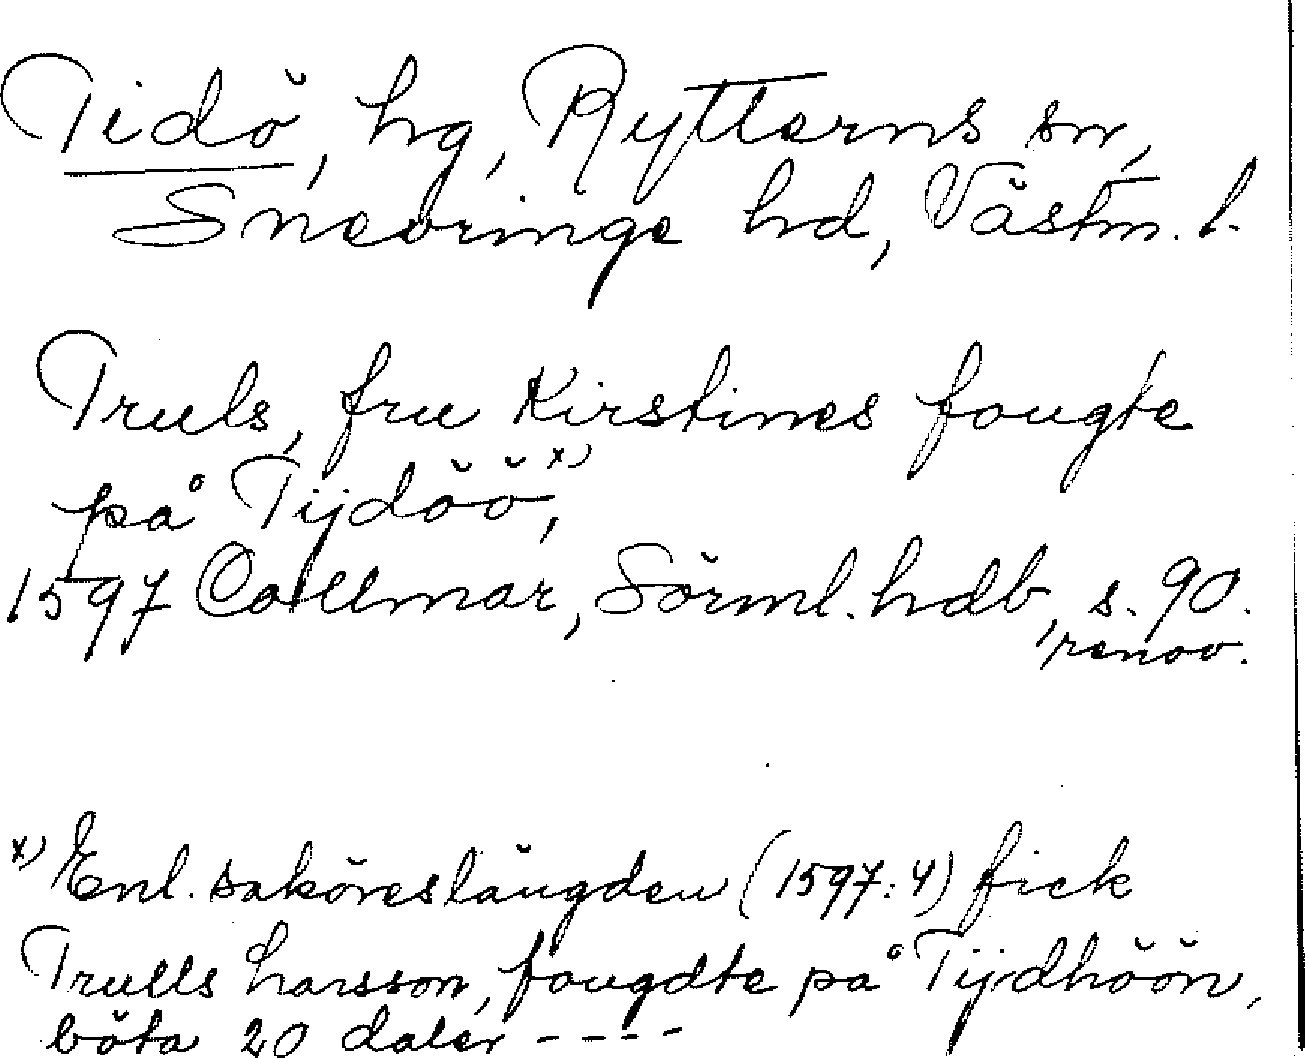 Tidö, hg, Rytterns sn,
Snevringe hd, Västm. l.
Truls, fru Kirstines fougte
på Tijdöö,x)
1597 Collmar, Sörml. hdb, s. 90.
renov.
x) Enl. saköreslängden (1597:4) fick
Trulls Larsson, fougdte på Tijdhöön,
böta 20 daler - - - -